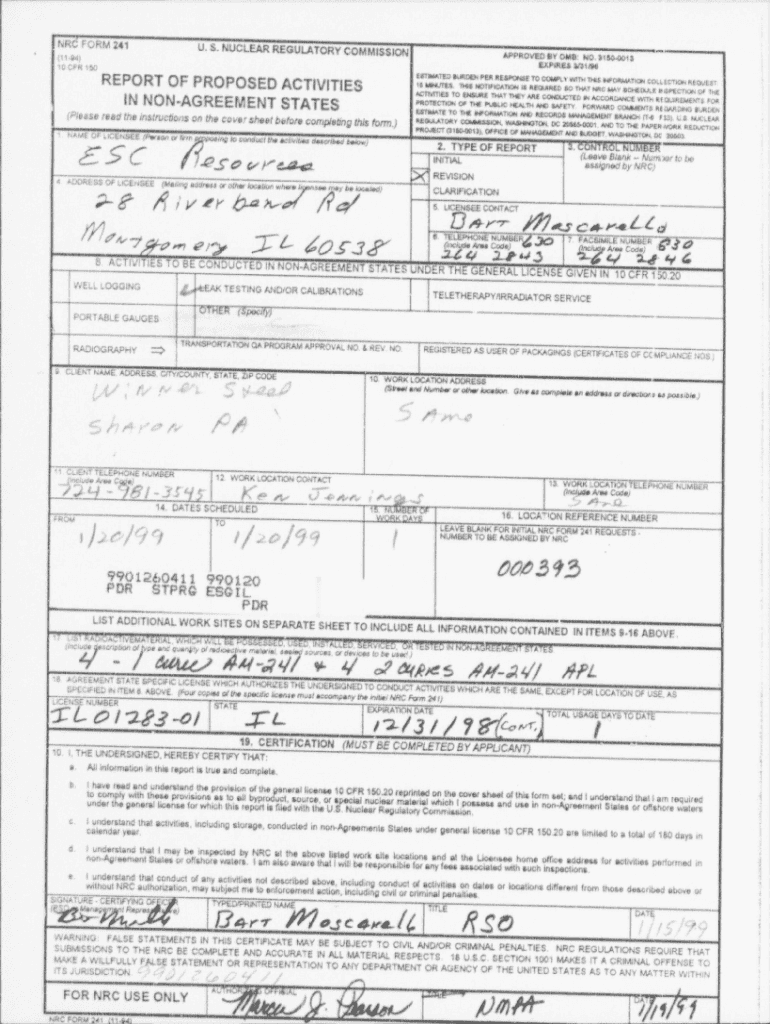 NRC FORM 241
(11-94)
10 CFR 150
U. S. NUCLEAR REGULATORY COMMISSION
REPORT OF PROPOSED ACTIVITIES
IN NON-AGREEMENT STATES
(Please read the instructions on the cover sheet before completing this form.)
APPROVED BY OMB: NO. 3150-0013
EXPIRES 5/31/96
ESTIMATED BURDEN PER RESPONSE TO COMPLY WITH THIS INFORMATION COLLECTION REQUEST:
15 MINUTES. THIS NOTIFICATION IS REQUIRED SO THAT NRC MAY SCHEDULE INSPECTION OF THE
ACTIVITIES TO ENSURE THAT THEY ARE CONDUCTED IN ACCORDANCE WITH REQUIREMENTS FOR
PROTECTION OF THE PUBLIC HEALTH AND SAFETY. FORWARD COMMENTS REGARDING BURDEN
ESTIMATE TO THE INFORMATION AND RECORDS MANAGEMENT BRANCH (T-6 F33), U.S. NUCLEAR
REGULATORY COMMISSION, WASHINGTON, DC 20555-0001, AND TO THE PAPERWORK REDUCTION
PROJECT (3150-0013), OFFICE OF MANAGEMENT AND BUDGET, WASHINGTON, DC 20503.
1. NAME OF LICENSEE (Person or firm proposing to conduct the activities described below)
ESC Resources
2. TYPE OF REPORT
INITIAL
X REVISION
CLARIFICATION
3. CONTROL NUMBER
(Leave Blank -- Number to be
assigned by NRC)
4. ADDRESS OF LICENSEE (Mailing address or other location where licensee may be located)
28 Riverbend Rd
Montgomery IL 60538
5. LICENSEE CONTACT
Bart Moscarello
6. TELEPHONE NUMBER
(Include Area Code)
630
264 2843
7. FACSIMILE NUMBER
(Include Area Code)
630
264 2846
8. ACTIVITIES TO BE CONDUCTED IN NON-AGREEMENT STATES UNDER THE GENERAL LICENSE GIVEN IN 10 CFR 150.20
WELL LOGGING
LEAK TESTING AND/OR CALIBRATIONS
TELETHERAPY/IRRADIATOR SERVICE
PORTABLE GAUGES
OTHER (Specify)
RADIOGRAPHY ⇒
TRANSPORTATION QA PROGRAM APPROVAL NO. & REV. NO.
REGISTERED AS USER OF PACKAGINGS (CERTIFICATES OF COMPLIANCE NOS.)
9. CLIENT NAME, ADDRESS, CITY/COUNTY, STATE, ZIP CODE
Winner Steel
Sharon PA
10. WORK LOCATION ADDRESS
(Street and Number or other location. Give as complete an address or directions as possible.)
Same
11. CLIENT TELEPHONE NUMBER
(Include Area Code)
724-981-3545
12. WORK LOCATION CONTACT
Ken Jennings
13. WORK LOCATION TELEPHONE NUMBER
(Include Area Code)
Same
14. DATES SCHEDULED
FROM
1/20/99
TO
1/20/99
15. NUMBER OF
WORK DAYS
1
16. LOCATION REFERENCE NUMBER
LEAVE BLANK FOR INITIAL NRC FORM 241 REQUESTS -
NUMBER TO BE ASSIGNED BY NRC
000393
9901260411 990120
PDR STPRG ESGIL
PDR
LIST ADDITIONAL WORK SITES ON SEPARATE SHEET TO INCLUDE ALL INFORMATION CONTAINED IN ITEMS 9-16 ABOVE.
17. LIST RADIOACTIVE MATERIAL, WHICH WILL BE POSSESSED, USED, INSTALLED, SERVICED, OR TESTED IN NON-AGREEMENT STATES
(Include description of type and quantity of radioactive material, sealed sources, or devices to be used.)
4 - 1 curie AM-241 & 4 2 curies AM-241 APL
18. AGREEMENT STATE SPECIFIC LICENSE WHICH AUTHORIZES THE UNDERSIGNED TO CONDUCT ACTIVITIES WHICH ARE THE SAME, EXCEPT FOR LOCATION OF USE, AS
SPECIFIED IN ITEM 8. ABOVE. (Four copies of the specific license must accompany the initial NRC Form 241)
LICENSE NUMBER
IL01283-01
STATE
IL
EXPIRATION DATE
12/31/98 (CONT.)
TOTAL USAGE DAYS TO DATE
1
19. CERTIFICATION (MUST BE COMPLETED BY APPLICANT)
10. I, THE UNDERSIGNED, HEREBY CERTIFY THAT:
a. All information in this report is true and complete.
b. I have read and understand the provision of the general license 10 CFR 150.20 reprinted on the cover sheet of this form set; and I understand that I am required
to comply with these provisions as to all byproduct, source, or special nuclear material which I possess and use in non-Agreement States or offshore waters
under the general license for which this report is filed with the U.S. Nuclear Regulatory Commission.
c. I understand that activities, including storage, conducted in non-Agreements States under general license 10 CFR 150.20 are limited to a total of 180 days in
calendar year.
d. I understand that I may be inspected by NRC at the above listed work site locations and at the Licensee home office address for activities performed in
non-Agreement States or offshore waters. I am also aware that I will be responsible for any fees associated with such inspections.
e. I understand that conduct of any activities not described above, including conduct of activities on dates or locations different from those described above or
without NRC authorization, may subject me to enforcement action, including civil or criminal penalties.
SIGNATURE - CERTIFYING OFFICER
(RSO or Management Representative)
TYPED/PRINTED NAME
Bart Moscarello
TITLE
RSO
DATE
1/15/99
WARNING: FALSE STATEMENTS IN THIS CERTIFICATE MAY BE SUBJECT TO CIVIL AND/OR CRIMINAL PENALTIES. NRC REGULATIONS REQUIRE THAT
SUBMISSIONS TO THE NRC BE COMPLETE AND ACCURATE IN ALL MATERIAL RESPECTS. 18 U.S.C. SECTION 1001 MAKES IT A CRIMINAL OFFENSE TO
MAKE A WILLFULLY FALSE STATEMENT OR REPRESENTATION TO ANY DEPARTMENT OR AGENCY OF THE UNITED STATES AS TO ANY MATTER WITHIN
ITS JURISDICTION.
FOR NRC USE ONLY
AUTHORIZING OFFICIAL
Marcia J. Pearson
TITLE
NMPA
DATE
1/19/99
NRC FORM 241 (11-94)